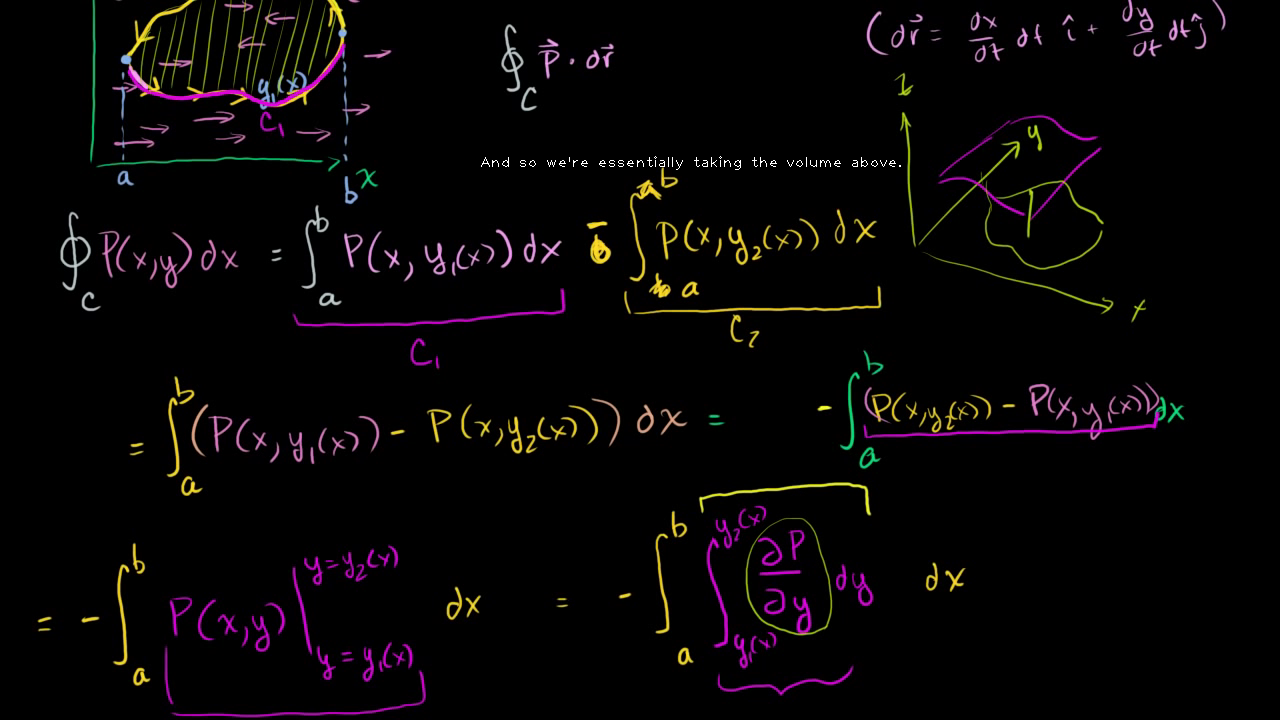 ∮_C P⃗ · dr⃗
(dr⃗ = dx/dt dt î + dy/dt dt ĵ)
y₁(x)
C₁
a b x
z y x
And so we're essentially taking the volume above.
∮_C P(x,y) dx = ∫_a^b P(x, y₁(x)) dx - ∫_a^b P(x, y₂(x)) dx
C₁ C₂
= ∫_a^b (P(x, y₁(x)) - P(x, y₂(x))) dx = - ∫_a^b (P(x, y₂(x)) - P(x, y₁(x))) dx
= - ∫_a^b P(x,y) |_{y = y₁(x)}^{y = y₂(x)} dx = - ∫_a^b ∫_{y₁(x)}^{y₂(x)} ∂P/∂y dy dx